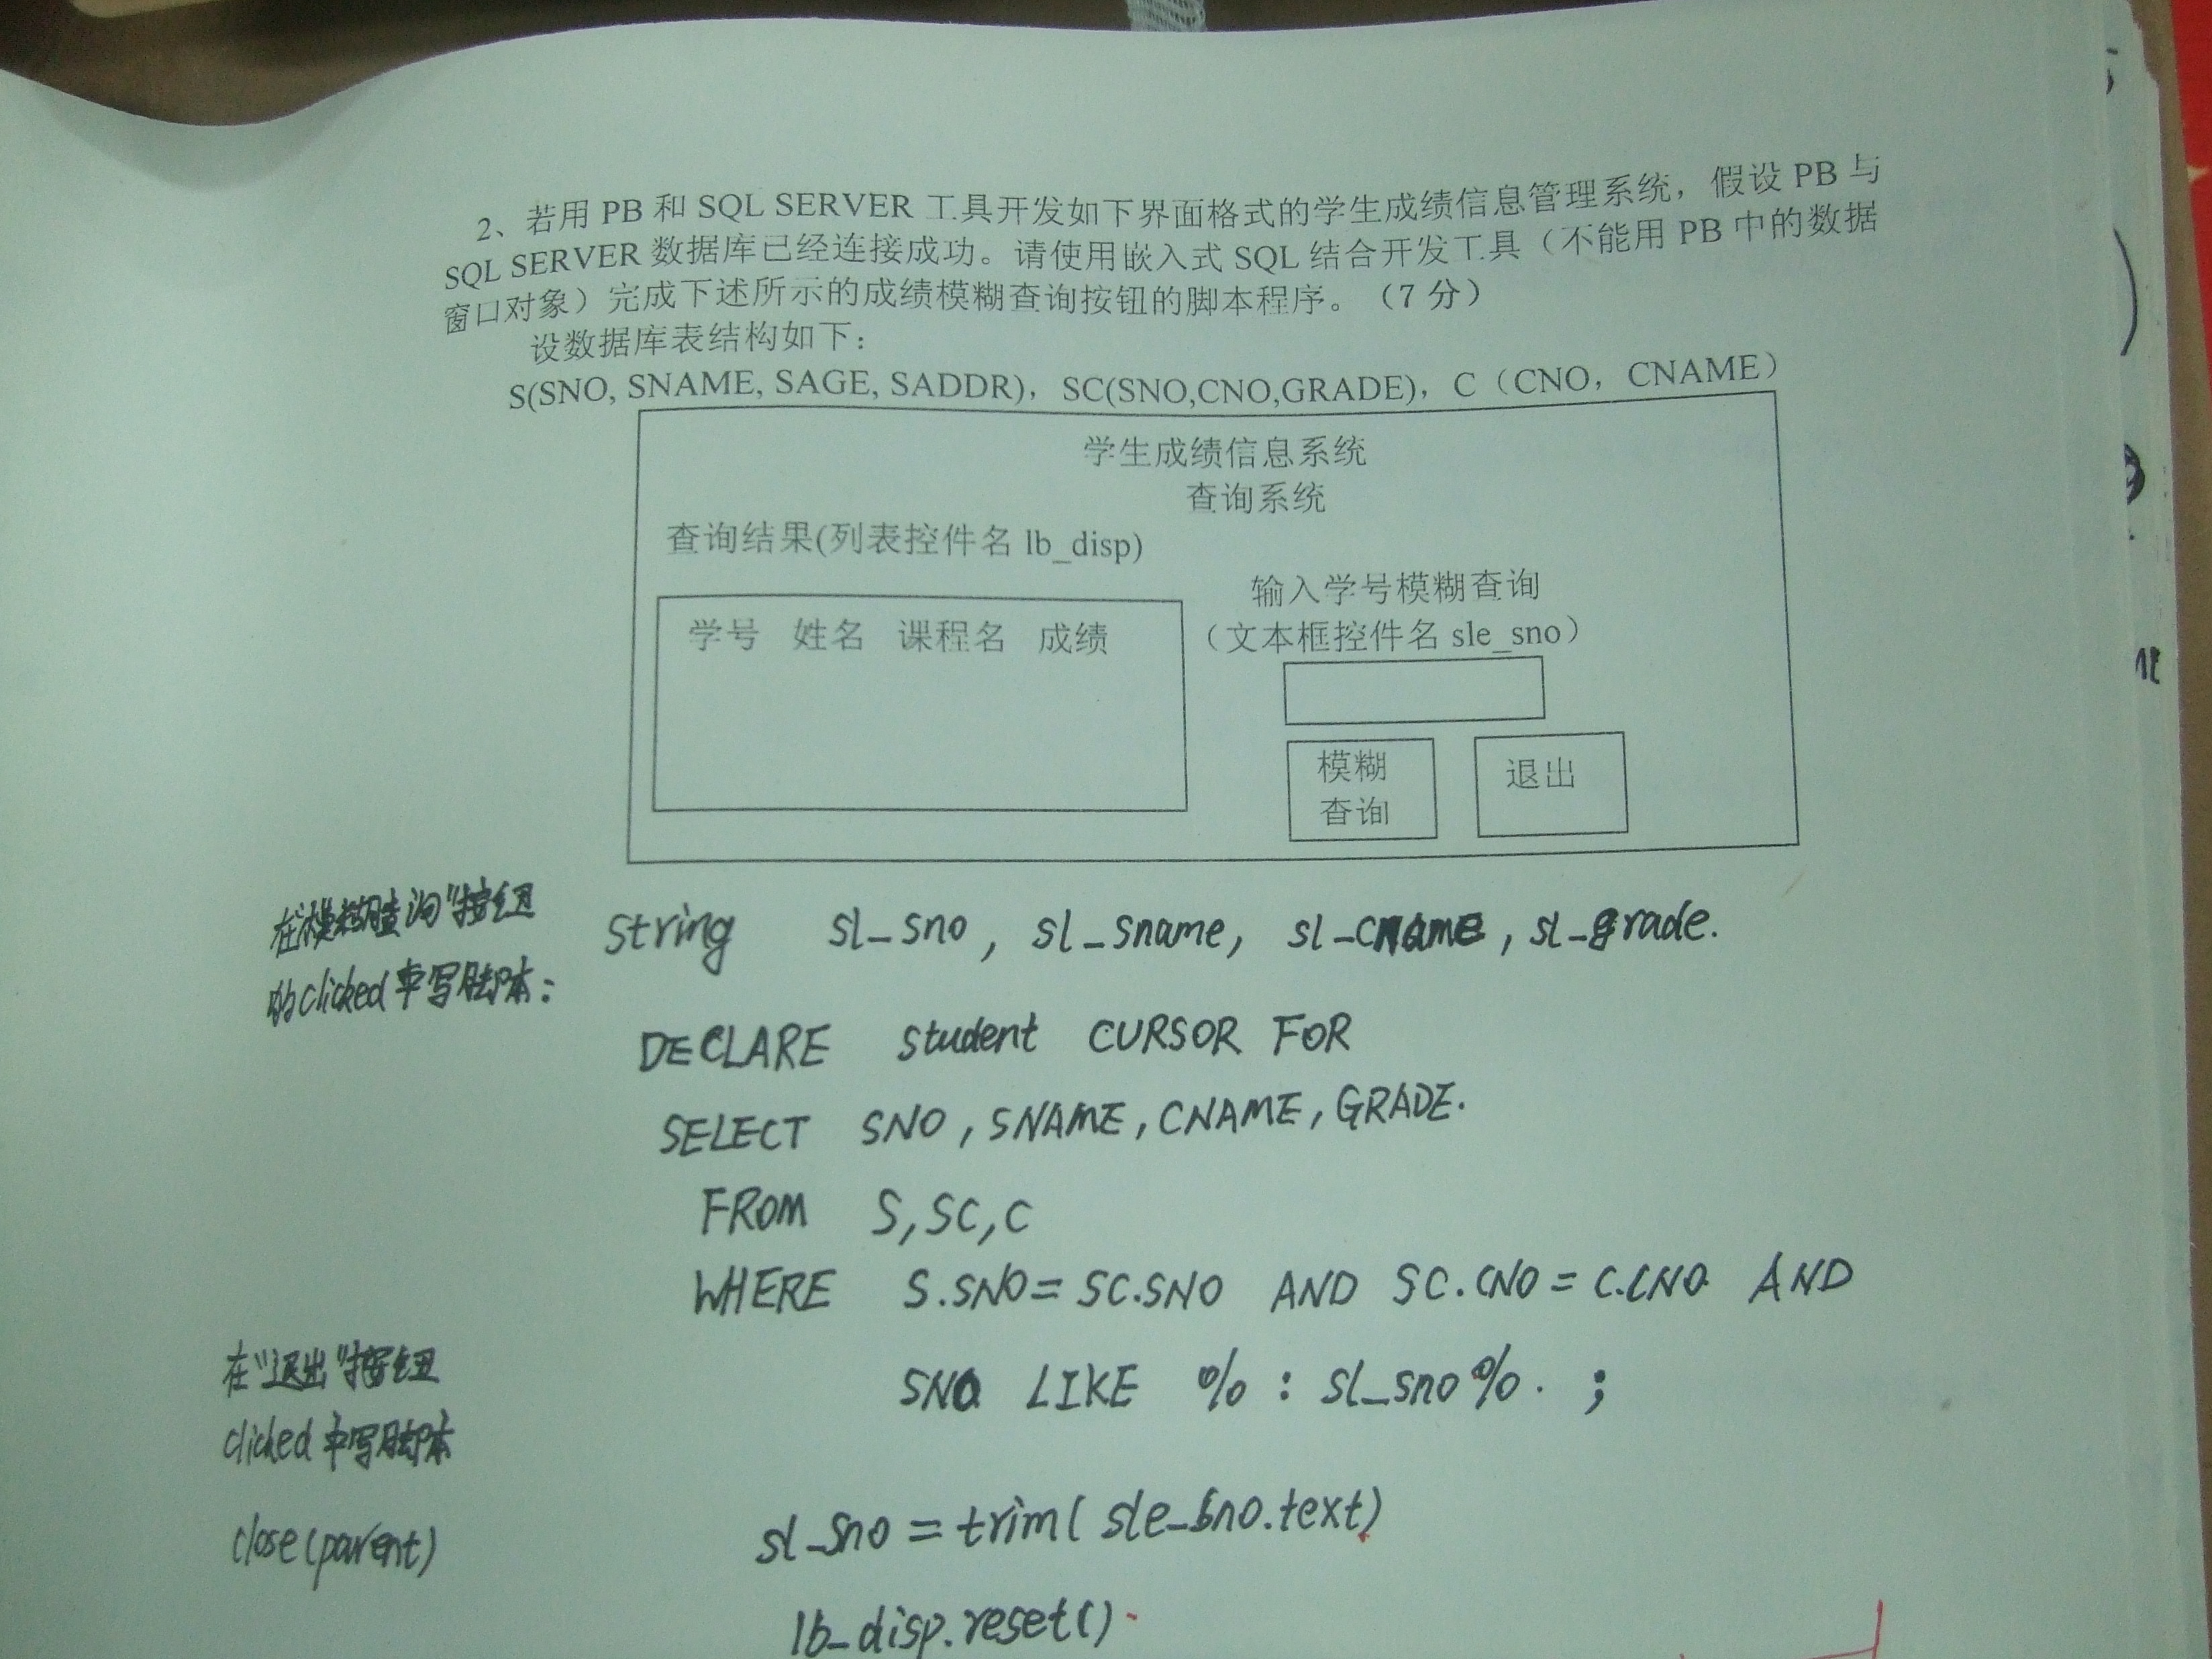 2、若用 PB 和 SQL SERVER 工具开发如下界面格式的学生成绩信息管理系统，假设 PB 与
SQL SERVER 数据库已经连接成功。请使用嵌入式 SQL 结合开发工具（不能用 PB 中的数据
窗口对象）完成下述所示的成绩模糊查询按钮的脚本程序。（7 分）
设数据库表结构如下：
S(SNO, SNAME, SAGE, SADDR)，SC(SNO,CNO,GRADE)，C（CNO，CNAME）
学生成绩信息系统
查询系统
查询结果(列表控件名 lb_disp)
输入学号模糊查询
（文本框控件名 sle_sno）
学号 姓名 课程名 成绩
模糊
查询
退出
在"模糊查询"按钮
的clicked中写脚本：
string sl_sno, sl_sname, sl_cname, sl_grade.
DECLARE student CURSOR FOR
SELECT SNO, SNAME, CNAME, GRADE.
FROM S, SC, C
WHERE S.SNO = SC.SNO AND SC.CNO = C.CNO AND
SNO LIKE %:sl_sno%. ;
在"退出"按钮
clicked中写脚本
close(parent)
sl_sno = trim(sle_sno.text)
lb_disp.reset()